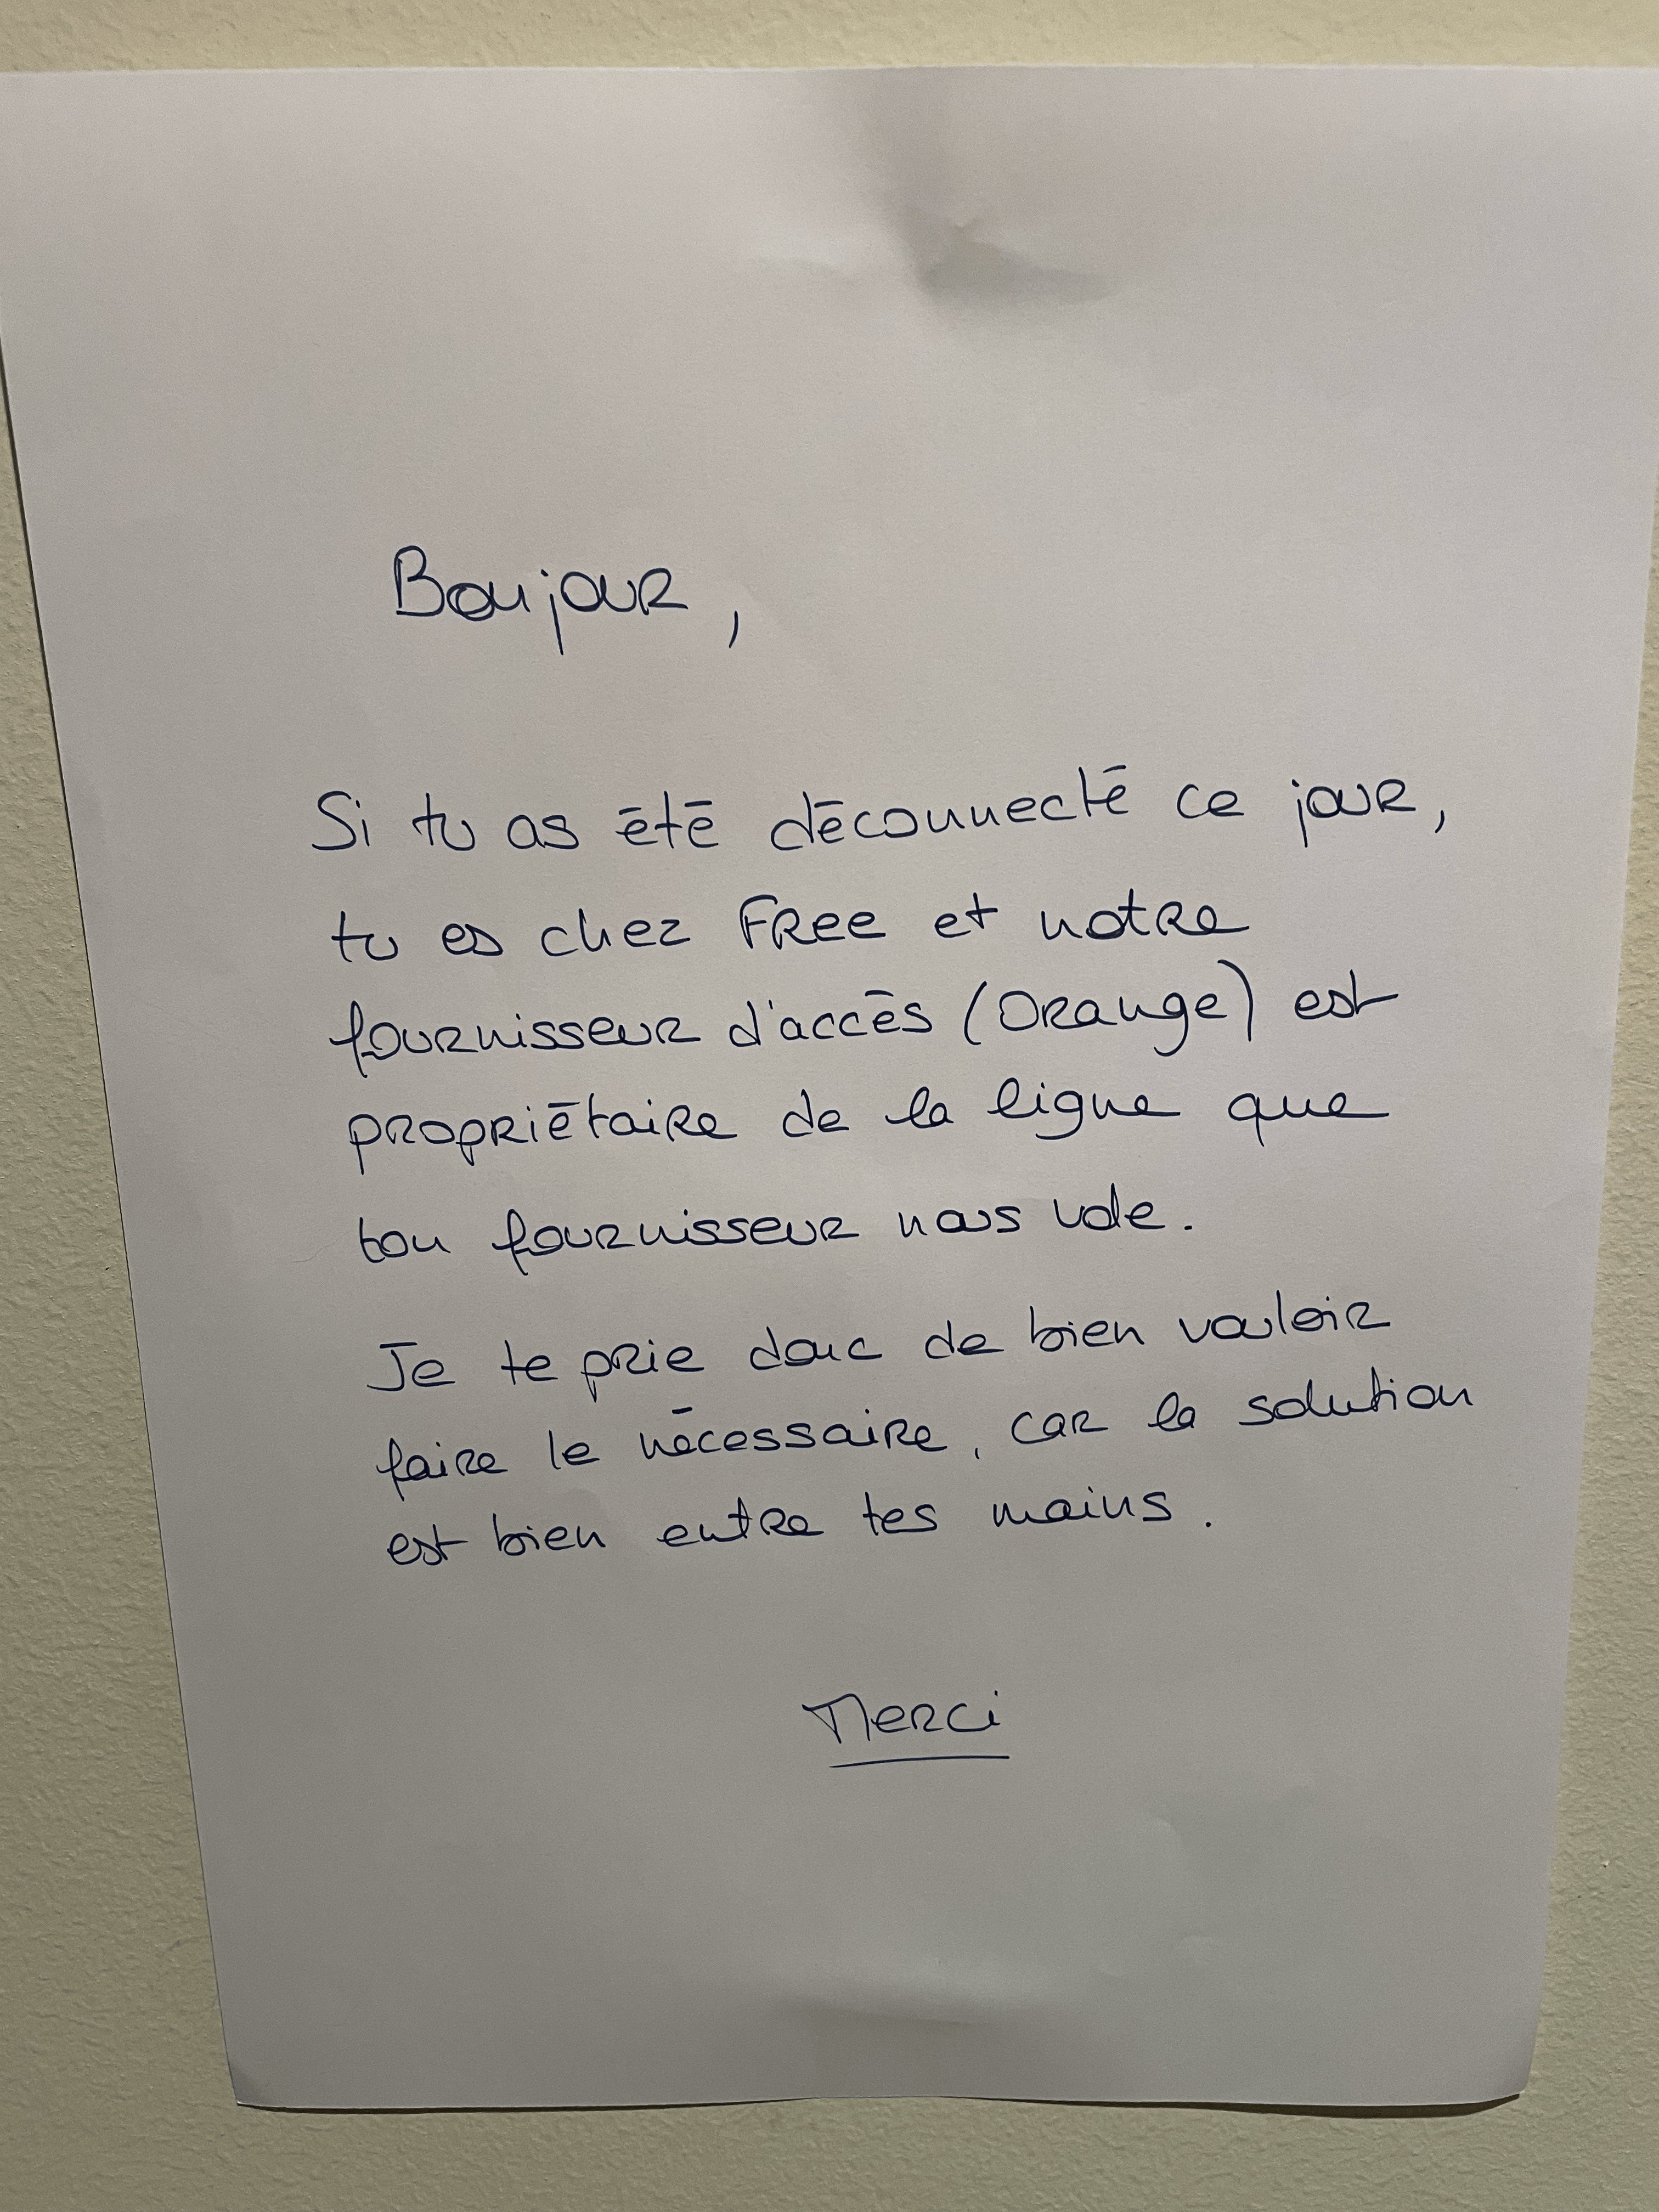 Bonjour,
Si tu as été déconnecté ce jour,
tu es chez Free et notre
fournisseur d'accès (Orange) est
propriétaire de la ligne que
ton fournisseur nous vole.
Je te prie donc de bien vouloir
faire le nécessaire, car la solution
est bien entre tes mains.
Merci